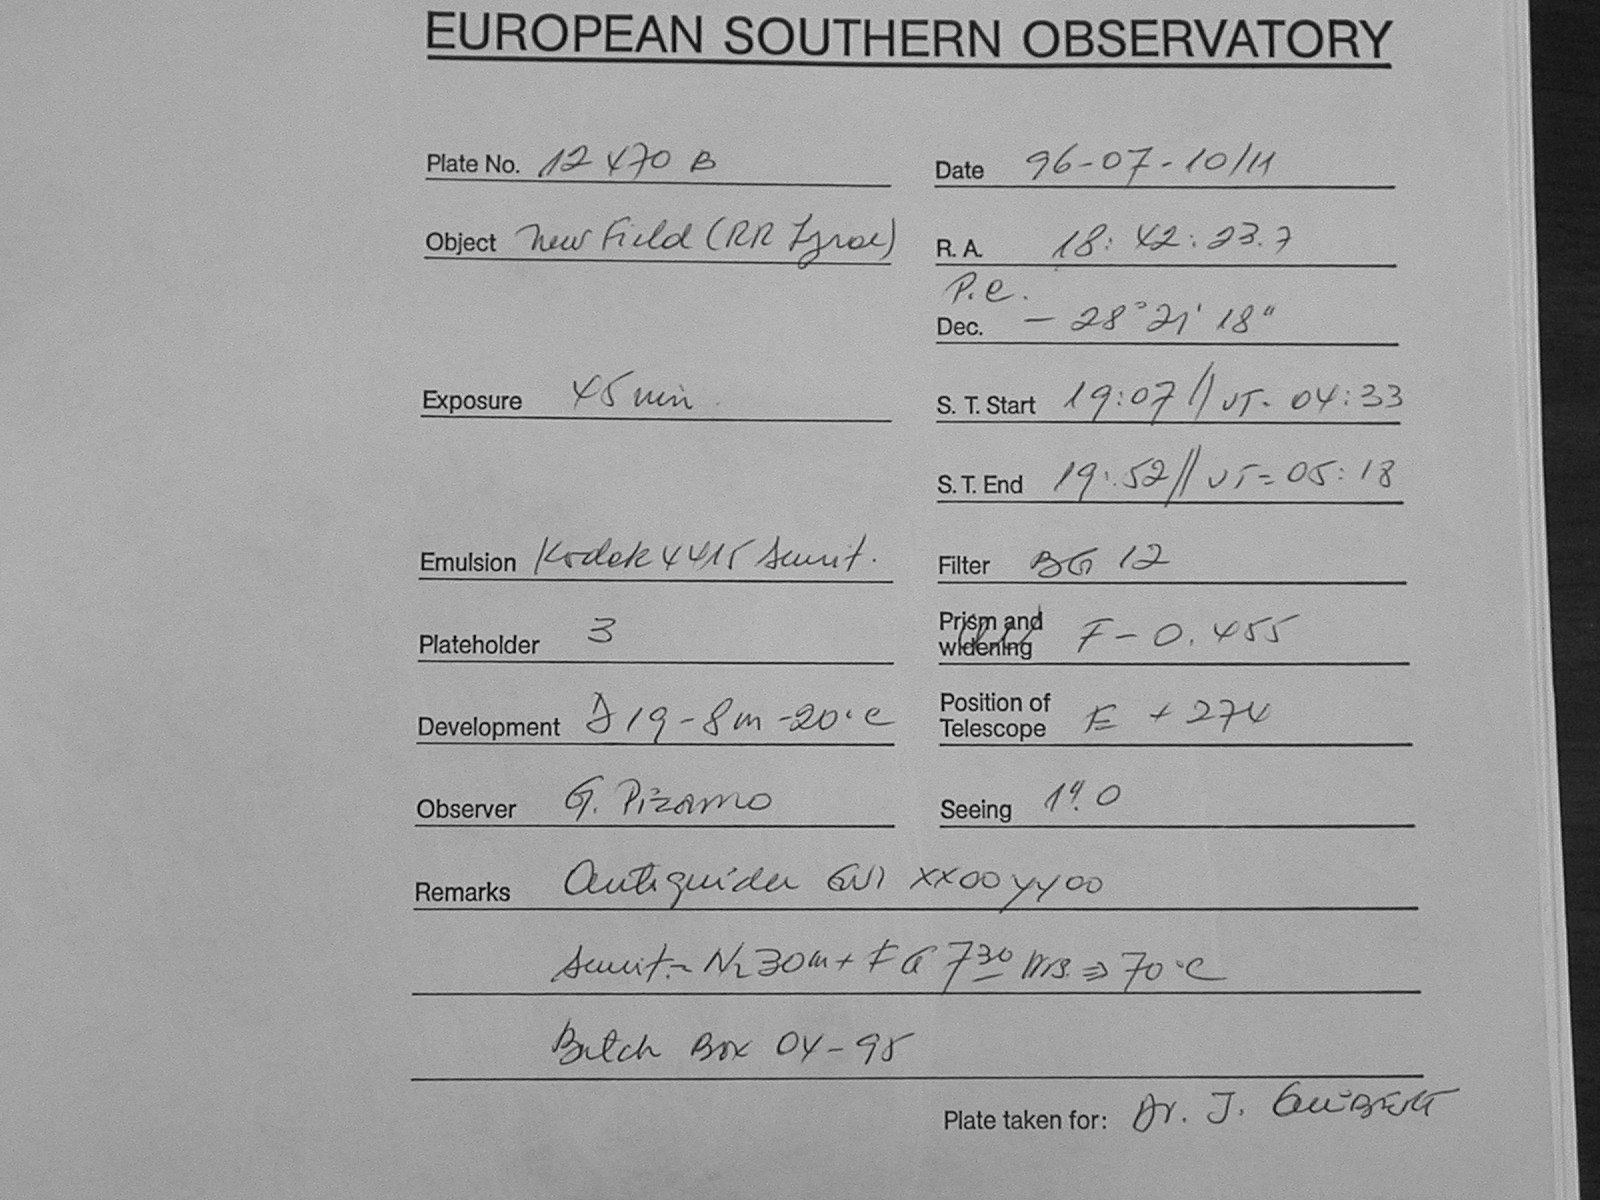 EUROPEAN SOUTHERN OBSERVATORY
Plate No. 12470 B
Date 96-07-10/11
Object New Field (RR Lyrae)
R. A. 18: 42: 23.7
P.e.
Dec. - 28° 21' 18"
Exposure 45 min.
S. T. Start 19:07 // UT- 04:33
S. T. End 19:52 // UT= 05:18
Emulsion Kodak 4415 Sensit.
Filter BG 12
Plateholder 3
Prism and widening F - 0.455
Development D19 - 8m - 20°C
Position of Telescope E + 274
Observer G. Pizarro
Seeing 1".0
Remarks Autoguider XX00 YY00
Sensit.- N2 30m + FG 7 30 hrs. => 70°C
Batch Box 04-95
Plate taken for: Dr. J. GUIBERT